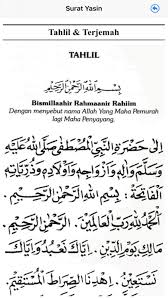 Surat Yasin
Tahlil & Terjemah
TAHLIL
بِسْمِ اللهِ الرَّحْمٰنِ الرَّحِيْمِ
Bismillaahir Rahmaanir Rahiim
Dengan menyebut nama Allah Yang Maha Pemurah
lagi Maha Penyayang.
إِلَى حَضْرَةِ النَّبِيِّ الْمُصْطَفَى صَلَّى اللهُ عَلَيْهِ
وَسَلَّمَ وَآلِهِ وَأَزْوَاجِهِ وَأَوْلَادِهِ وَذُرِّيَّاتِهِ
الْفَاتِحَةَ. بِسْمِ اللهِ الرَّحْمٰنِ الرَّحِيْمِ.
اَلْحَمْدُ لِلّٰهِ رَبِّ الْعَالَمِيْنَ. اَلرَّحْمٰنِ الرَّحِيْمِ.
مَالِكِ يَوْمِ الدِّيْنِ. إِيَّاكَ نَعْبُدُ وَإِيَّاكَ
نَسْتَعِيْنُ. اِهْدِنَا الصِّرَاطَ الْمُسْتَقِيْمَ.